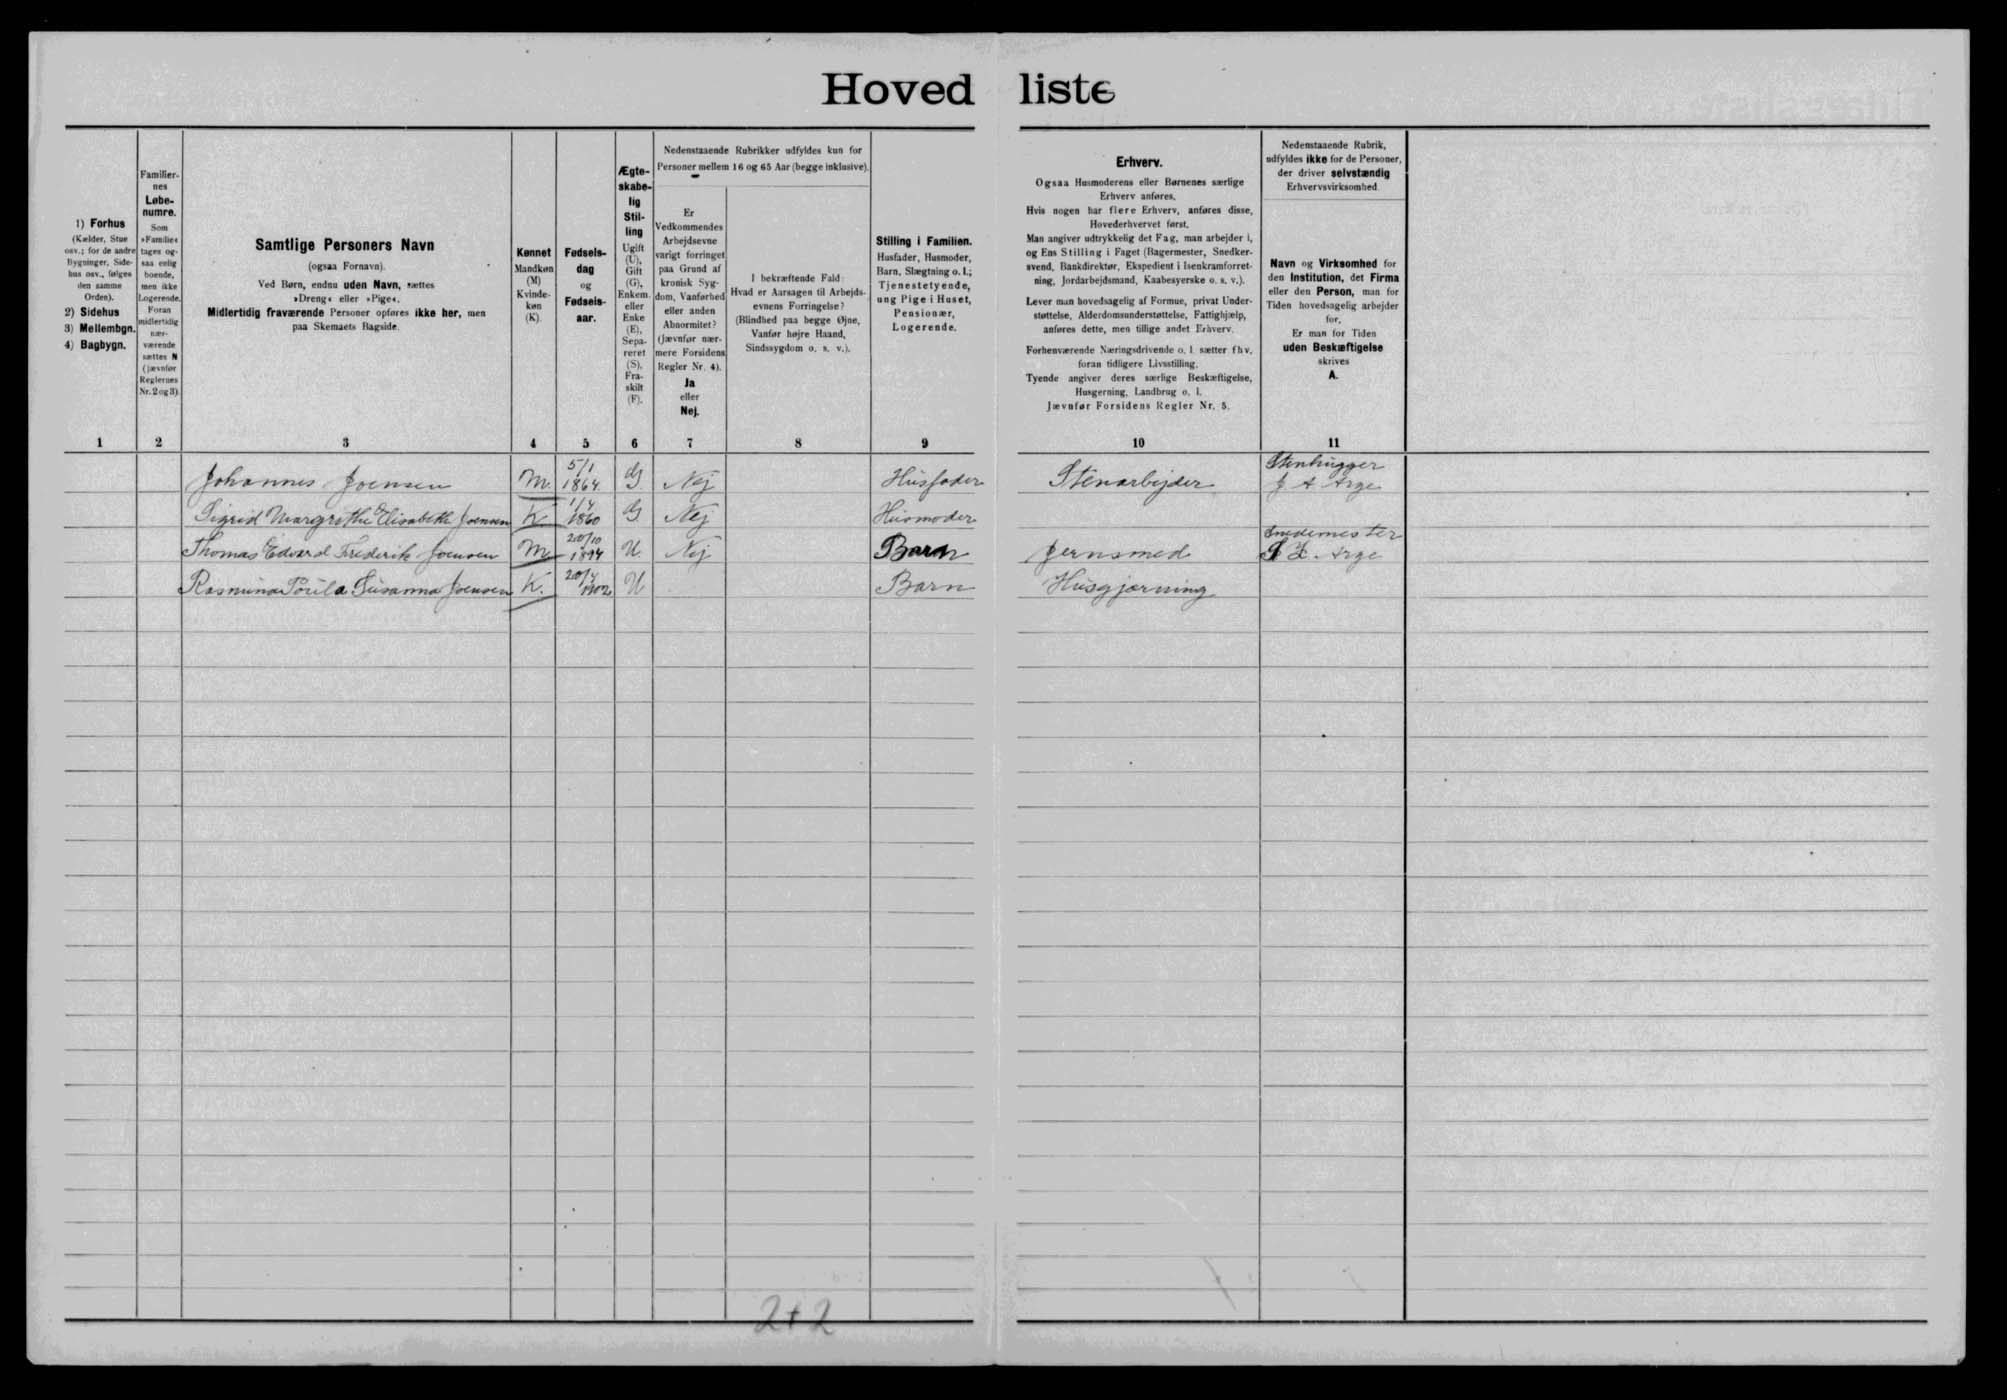 Hovedliste
1) Forhus
(Kælder, Stue
osv.; for de andre
Bygninger, Side-
hus osv., følges
den samme
Orden).
2) Sidehus
3) Mellembgn.
4) Bagbygn.
Familier-
nes
Løbe-
numre.
Som
»Familie«
tages og-
saa enlig
boende,
men ikke
Logerende.
Foran
midlertidig
nær-
værende
sættes N
(jævnfør
Reglernes
Nr. 2 og 3).
Samtlige Personers Navn
(ogsaa Fornavn).
Ved Børn, endnu uden Navn, sættes
»Dreng« eller »Pige«.
Midlertidig fraværende Personer opføres ikke her, men
paa Skemaets Bagside.
Kønnet
Mandkøn
(M)
Kvinde-
køn
(K).
Fødsels-
dag
og
Fødsels-
aar.
Ægte-
skabe-
lig
Stil-
ling
Ugift
(U),
Gift
(G),
Enkem.
eller
Enke
(E),
Sepa-
reret
(S),
Fra-
skilt
(F).
Nedenstaaende Rubrikker udfyldes kun for
Personer mellem 16 og 65 Aar (begge inklusive).
Er
Vedkommendes
Arbejdsevne
varigt forringet
paa Grund af
kronisk Syg-
dom, Vanførhed
eller anden
Abnormitet?
(Jævnfør nær-
mere Forsidens
Regler Nr. 4).
Ja
eller
Nej.
I bekræftende Fald:
Hvad er Aarsagen til Arbejds-
evnens Forringelse?
(Blindhed paa begge Øjne,
Vanfør højre Haand,
Sindssygdom o. s. v.).
Stilling i Familien.
Husfader, Husmoder,
Barn, Slægtning o. l.;
Tjenestetyende,
ung Pige i Huset,
Pensionær,
Logerende.
Erhverv.
Ogsaa Husmoderens eller Børnenes særlige
Erhverv anføres.
Hvis nogen har flere Erhverv, anføres disse,
Hovederhvervet først.
Man angiver udtrykkelig det Fag, man arbejder i,
og Ens Stilling i Faget (Bagermester, Snedker-
svend, Bankdirektør, Ekspedient i Isenkramforret-
ning, Jordarbejdsmand, Kaabesyerske o. s. v.).
Lever man hovedsagelig af Formue, privat Under-
støttelse, Alderdomsunderstøttelse, Fattighjælp,
anføres dette, men tillige andet Erhverv.
Forhenværende Næringsdrivende o. l. sætter fhv.
foran tidligere Livsstilling.
Tyende angiver deres særlige Beskæftigelse,
Husgerning, Landbrug o. l.
Jævnfør Forsidens Regler Nr. 5.
Nedenstaaende Rubrik,
udfyldes ikke for de Personer,
der driver selvstændig
Erhvervsvirksomhed.
Navn og Virksomhed for
den Institution, det Firma
eller den Person, man for
Tiden hovedsagelig arbejder
for.
Er man for Tiden
uden Beskæftigelse
skrives
A.
1 2 3 4 5 6 7 8 9 10 11
Johannes Joensen M. 5/1 1864 G Nej Husfader Stenarbejder Stenhugger J A Arge
Sigrid Margrethe Elisabeth Joensen K 1/4 1860 G. Nej Husmoder
Thomas Edvard Frederik Joensen M 20/10 1894 U. Nej Barn Jernsmed Smedemester Arge
Rasmina Poula Susanna Joensen K. 20/4 1902 U Barn Husgjærning
2+2